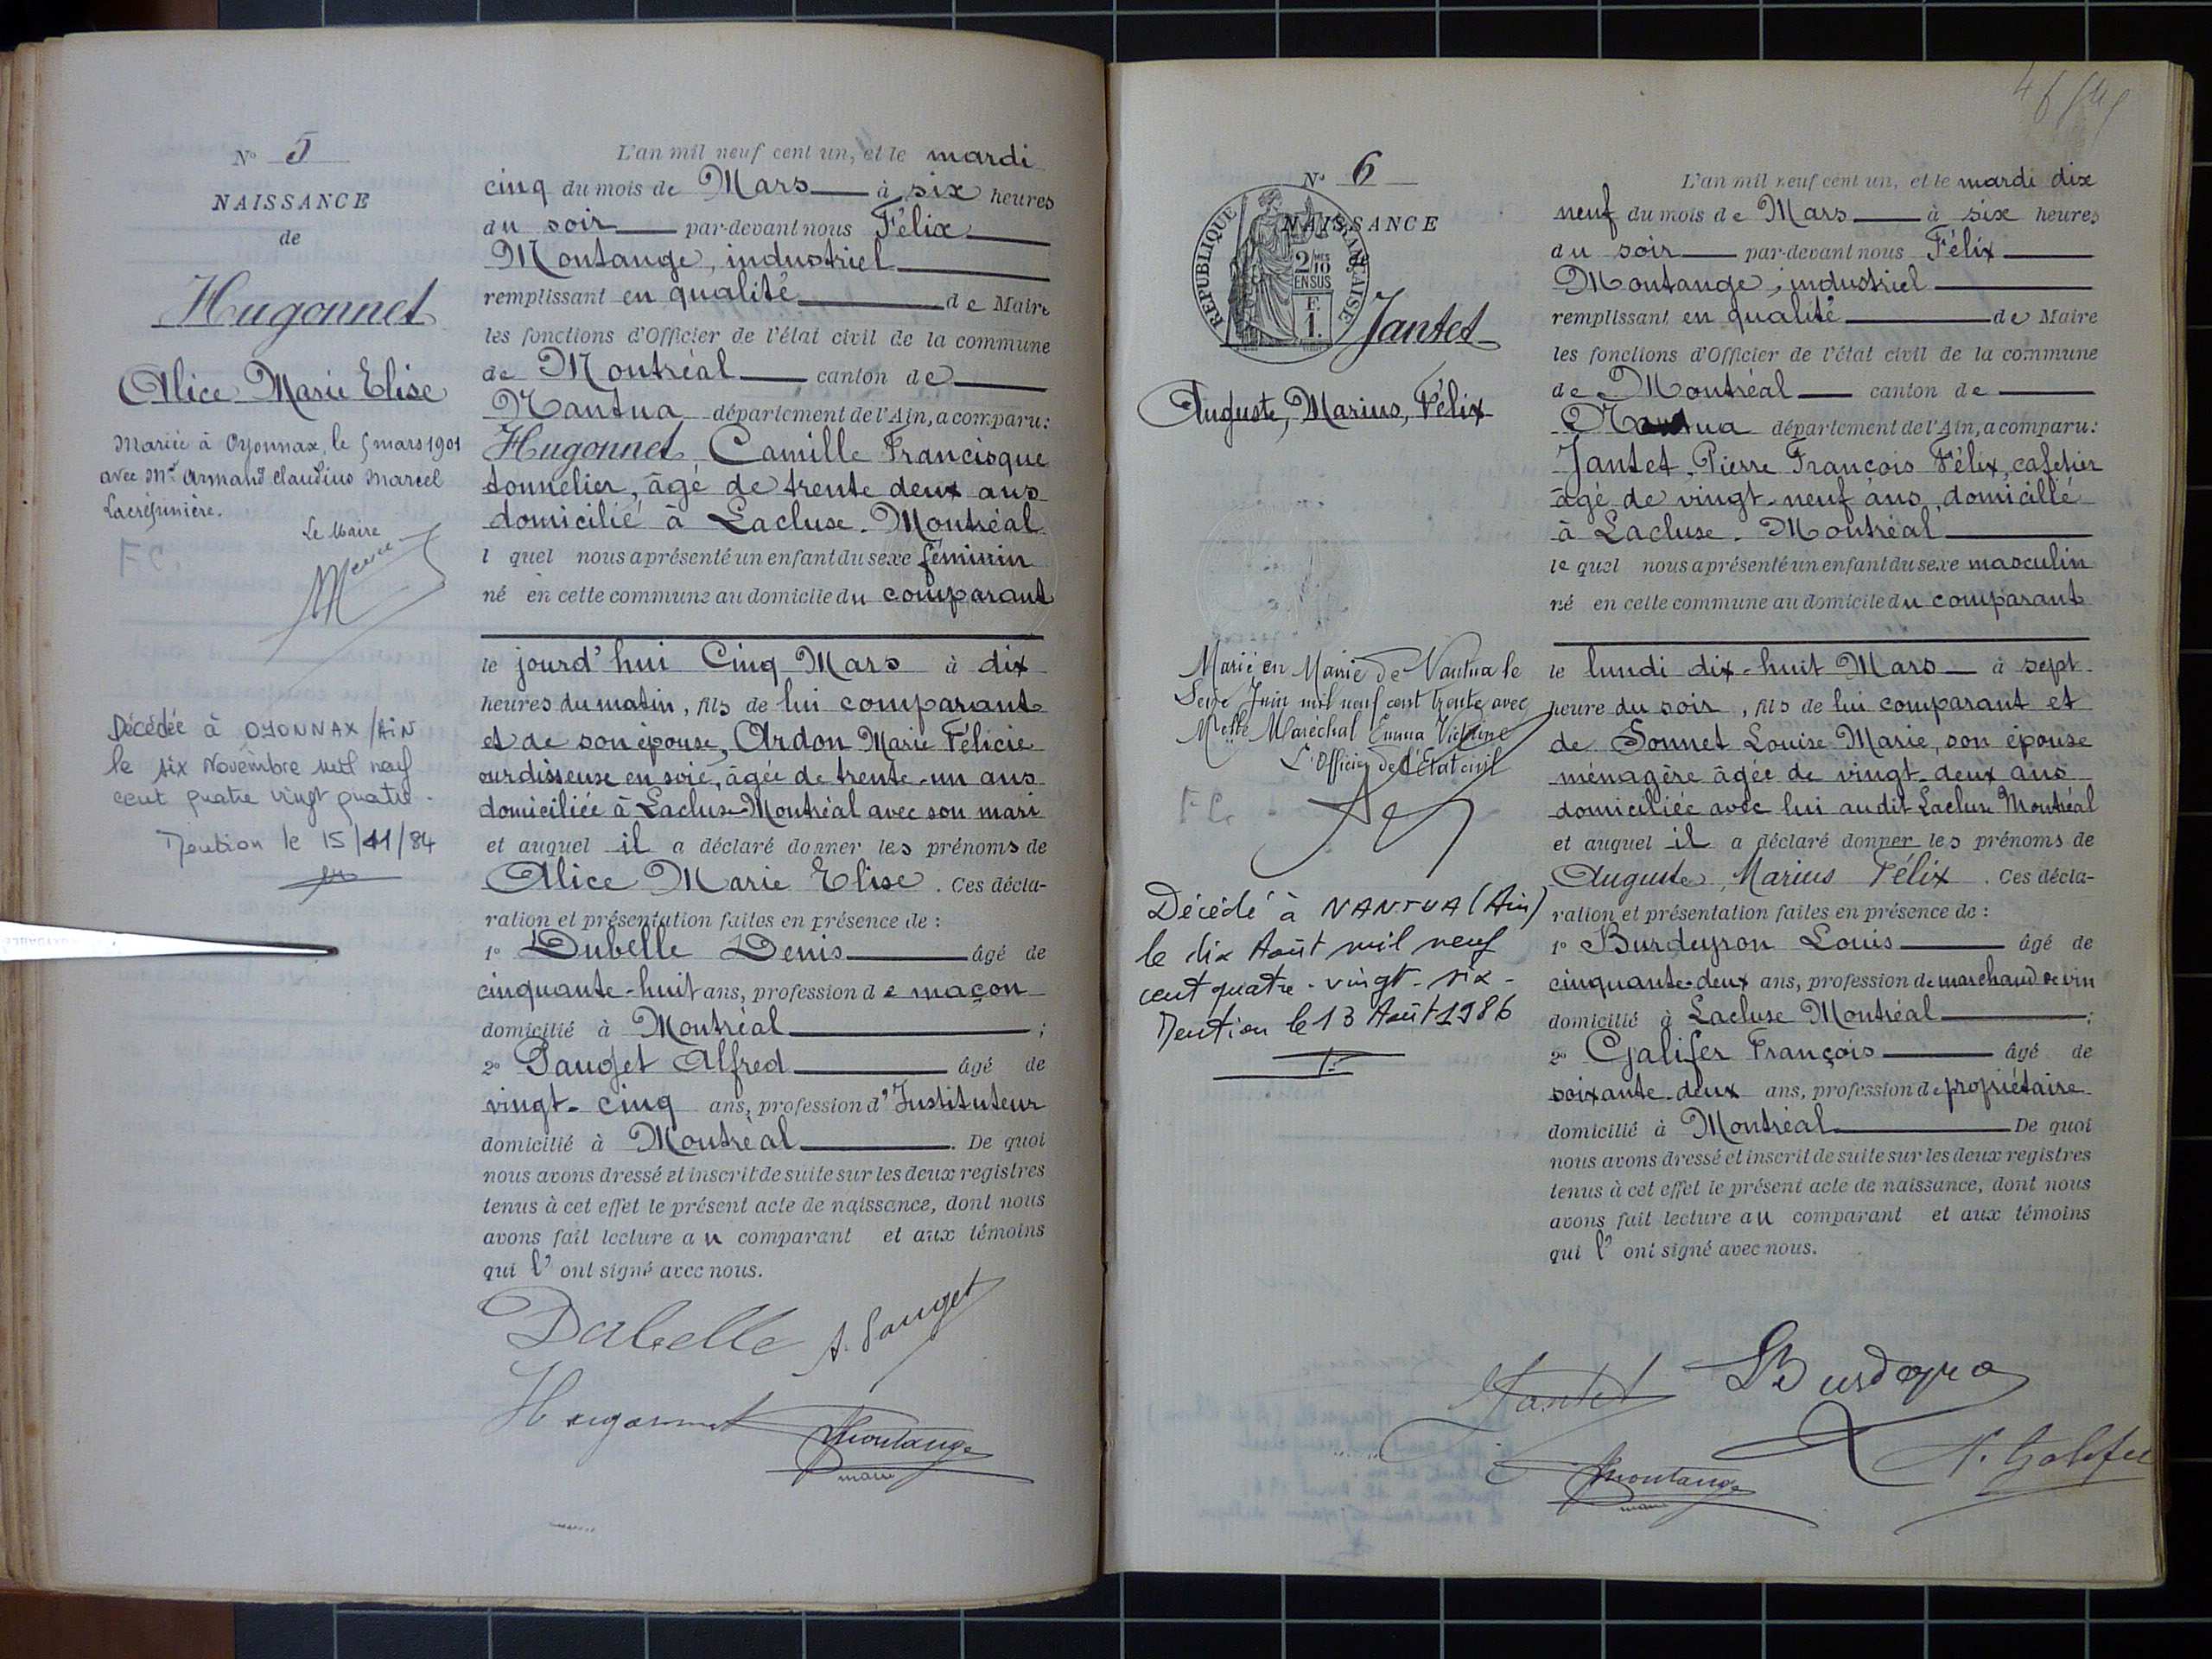 N° 5
NAISSANCE
de
Hugonnet
Alice Marie Elise
Mariée à Oyonnax, le 5 mars 1901
avec Mr Armand Claudius Marcel
Le Maire
F C.
Décédée à OYONNAX / AiN
le six Novembre mil neuf
cent quatre vingt quatre.
Mention le 15/11/84
L'an mil neuf cent un, et le mardi
cinq du mois de Mars à six heures
du soir par-devant nous Félix
Montange, industriel
remplissant en qualité de Maire
les fonctions d'Officier de l'état civil de la commune
de Montréal canton de
Nantua département de l'Ain, a comparu:
Hugonnet Camille Francisque
tonnelier, âgé de trente deux ans
domicilié à Lacluse. Montréal
l quel nous a présenté un enfant du sexe féminin
né en cette commune au domicile du comparant
le jourd'hui Cinq Mars à dix
heures du matin, fils de lui comparant
et de son épouse, Ardon Marie Félicie
ourdisseuse en soie, âgée de trente-un ans
domiciliée à Lacluse-Montréal avec son mari
et auquel il a déclaré donner les prénoms de
Alice Marie Elise. Ces décla-
ration et présentation faites en présence de :
1° Dubelle Denis âgé de
cinquante-huit ans, profession de maçon
domicilié à Montréal ;
2° Pauget Alfred âgé de
vingt-cinq ans, profession d'Instituteur
domicilié à Montréal. De quoi
nous avons dressé et inscrit de suite sur les deux registres
tenus à cet effet le présent acte de naissance, dont nous
avons fait lecture au comparant et aux témoins
qui l' ont signé avec nous.
Dubelle A. Pauget
Hugonnet Montange
maire
N° 6
NAISSANCE
RÉPUBLIQUE FRANÇAISE
2/10
EN SUS
F.
1.
Jantet
Auguste, Marius, Félix
Marié en Mairie de Nantua le
Seize Juin mil neuf cent trente avec
Melle Maréchal Emma Victorine
L'Officier de l'Etat civil
F C.
Décédé à NANTUA (Ain)
le dix Août mil neuf
cent quatre-vingt-six-
Mention le 13 Août 1986
L'an mil neuf cent un, et le mardi dix
neuf du mois de Mars à six heures
du soir par-devant nous Félix
Montange, industriel
remplissant en qualité de Maire
les fonctions d'Officier de l'état civil de la commune
de Montréal canton de
Nantua département de l'Ain, a comparu:
Jantet, Pierre François Félix, cafetier
âgé de vingt-neuf ans, domicilié
à Lacluse. Montréal
le quel nous a présenté un enfant du sexe masculin
né en cette commune au domicile du comparant
le lundi dix-huit Mars à sept
heure du soir, fils de lui comparant et
de Sonnet Louise Marie, son épouse
ménagère âgée de vingt-deux ans
domiciliée avec lui audit Lacluse Montréal
et auquel il a déclaré donner les prénoms de
Auguste, Marius Félix. Ces décla-
ration et présentation faites en présence de :
1° Burdeyron Louis âgé de
cinquante-deux ans, profession de marchand de vin
domicilié à Lacluse Montréal ;
2° Galifer François âgé de
soixante-deux ans, profession de propriétaire
domicilié à Montréal De quoi
nous avons dressé et inscrit de suite sur les deux registres
tenus à cet effet le présent acte de naissance, dont nous
avons fait lecture au comparant et aux témoins
qui l' ont signé avec nous.
Jantet
Montange
maire